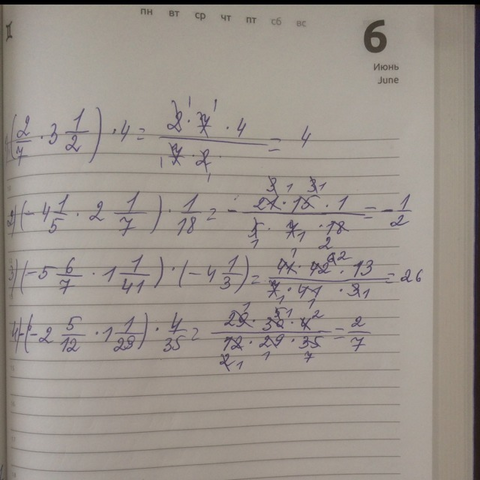 пн вт ср чт пт сб вс
6
Июнь
June
(2/7 · 3 1/2) · 4 = 2 · 7 · 4 / 7 · 2 = 4
2) (-4 1/5 · 2 1/7) · 1/18 = - 21 · 15 · 1 / 5 · 7 · 18 = - 1/2
3) (-5 6/7 · 1 1/41) · (-4 1/3) = 41 · 42 · 13 / 7 · 41 · 3 = 26
4) (-2 5/12 · 1 1/29) · 4/35 = 29 · 30 · 4 / 12 · 29 · 35 = 2/7